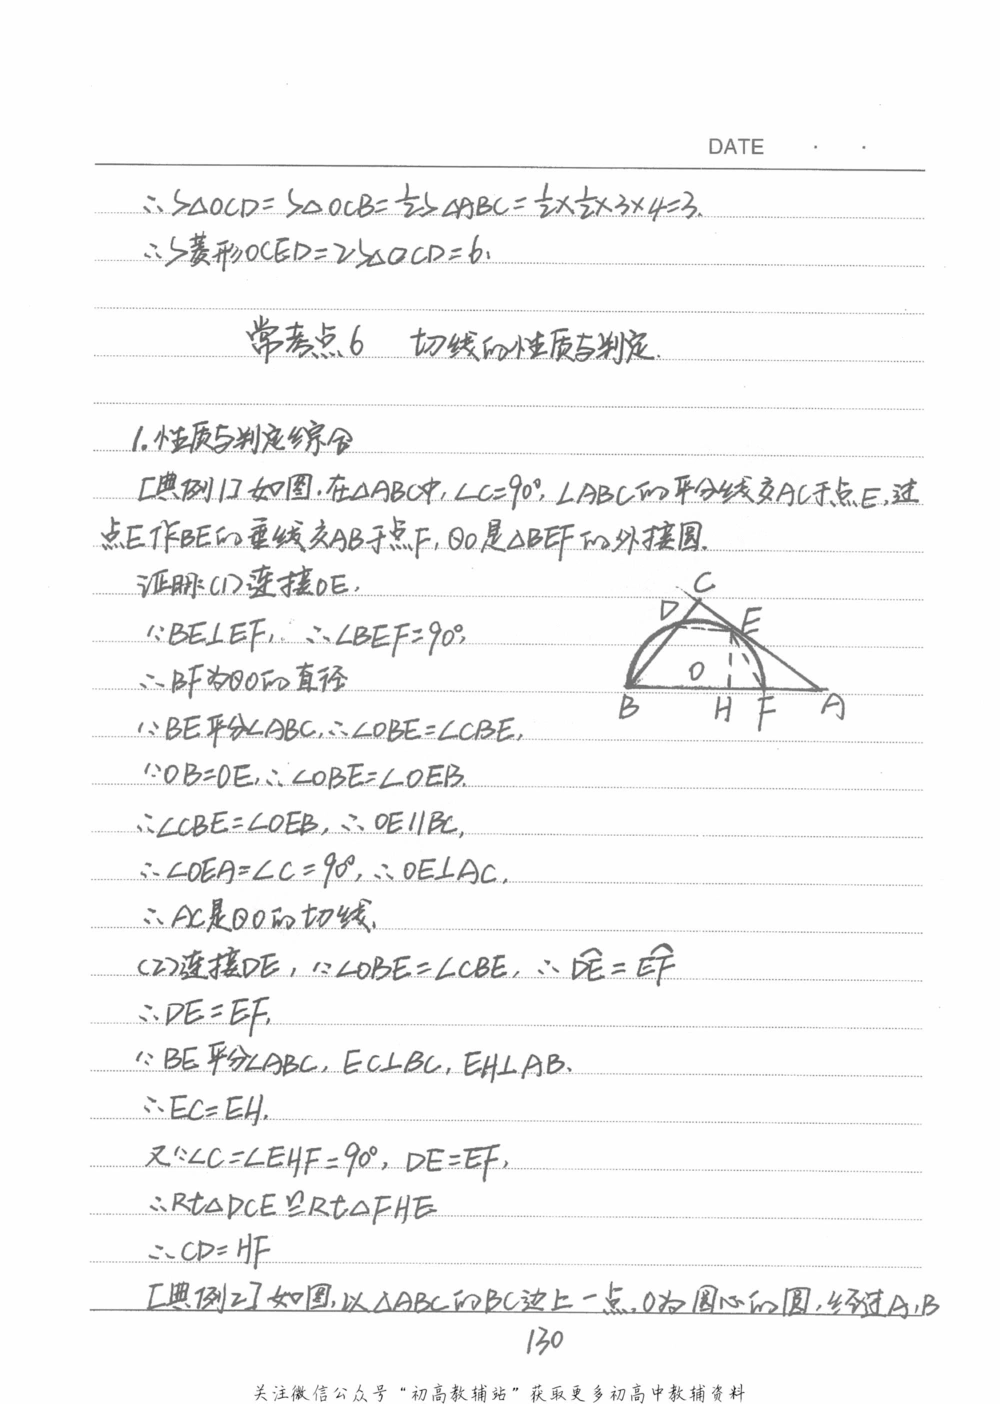 DATE · ·
∴S△OCD=S△OCB=½S△ABC=½×½×3×4=3.
∴S菱形OCED=2S△OCD=6.
常考点6 切线的性质与判定.
1.性质与判定综合
[典例1]如图,在△ABC中,∠C=90°,∠ABC的平分线交AC于点E,过
点E作BE的垂线交AB于点F,⊙O是△BEF的外接圆.
证明:(1)连接OE,
∵BE⊥EF, ∴∠BEF=90°,
∴BF为⊙O的直径
∵BE平分∠ABC,∴∠OBE=∠CBE,
∵OB=OE,∴∠OBE=∠OEB.
∴∠CBE=∠OEB,∴OE∥BC,
∴∠OEA=∠C=90°,∴OE⊥AC,
∴AC是⊙O的切线.
C
D
E
O
B
H
F
A
(2)连接DE,∵∠OBE=∠CBE,∴D͡E=E͡F
∴DE=EF,
∵BE平分∠ABC,EC⊥BC,EH⊥AB.
∴EC=EH.
又∵∠C=∠EHF=90°,DE=EF,
∴Rt△DCE≌Rt△FHE
∴CD=HF
[典例2]如图,以△ABC的BC边上一点,O为圆心的圆,经过A,B
130
关注微信公众号“初高教辅站”获取更多初高中教辅资料